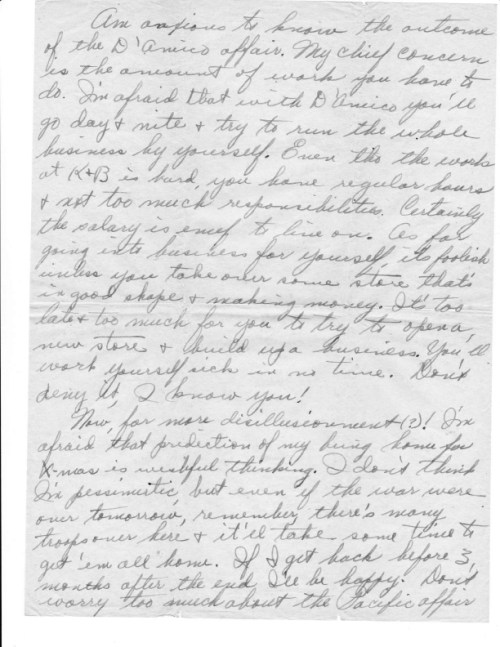 Am anxious to know the outcome
of the D'Amico affair. My chief concern
is the amount of work you have to
do. I'm afraid that with D'Amico you'll
go day & nite & try to run the whole
business by yourself. Even tho the work
at K&B is hard, you have regular hours
& not too much responsibilities. Certainly
the salary is enuf to live on. As for
going into business for yourself, its foolish
unless you take over some store that's
in good shape & making money. It's too
late & too much for you to try to open a
new store & build up a business. You'll
work yourself sick in no time. Don't
deny it, I know you!
Now, for more disillusionment(?)! I'm
afraid that prediction of my being home for
X-mas is wishful thinking. I don't think
I'm pessimistic, but even if the war were
over tomorrow, remember, there's many
troops over here & it'll take some time to
get 'em all home. If I get back before 3
months after the end I'll be happy. Don't
worry too much about the Pacific affair